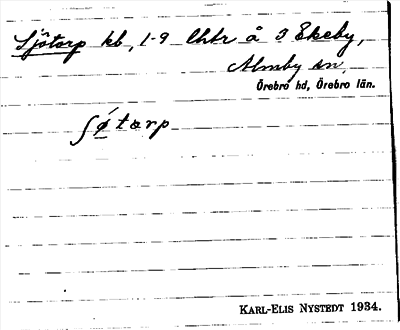 Sjötorp kb, 1-9 lhtr å 3 Ekeby,
Almby sn,
Örebro hd, Örebro län.
ʃǿtɔrp
KARL-ELIS NYSTEDT 1934.